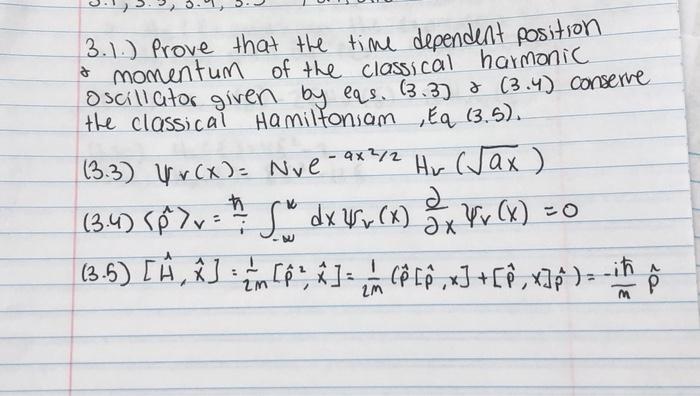 3.1.) Prove that the time dependent position
& momentum of the classical harmonic
oscillator given by eqs. (3.3) & (3.4) conserve
the classical Hamiltonian, Eq (3.5).
(3.3) ψv(x) = Nv e^-ax²/2 Hv (√ax)
(3.4) <p̂>v = ħ/i ∫_-∞^∞ dx ψv(x) ∂/∂x ψv(x) = 0
(3.5) [Ĥ, x̂] = 1/2m [p̂², x̂] = 1/2m (p̂[p̂, x] + [p̂, x]p̂) = -iħ/m p̂